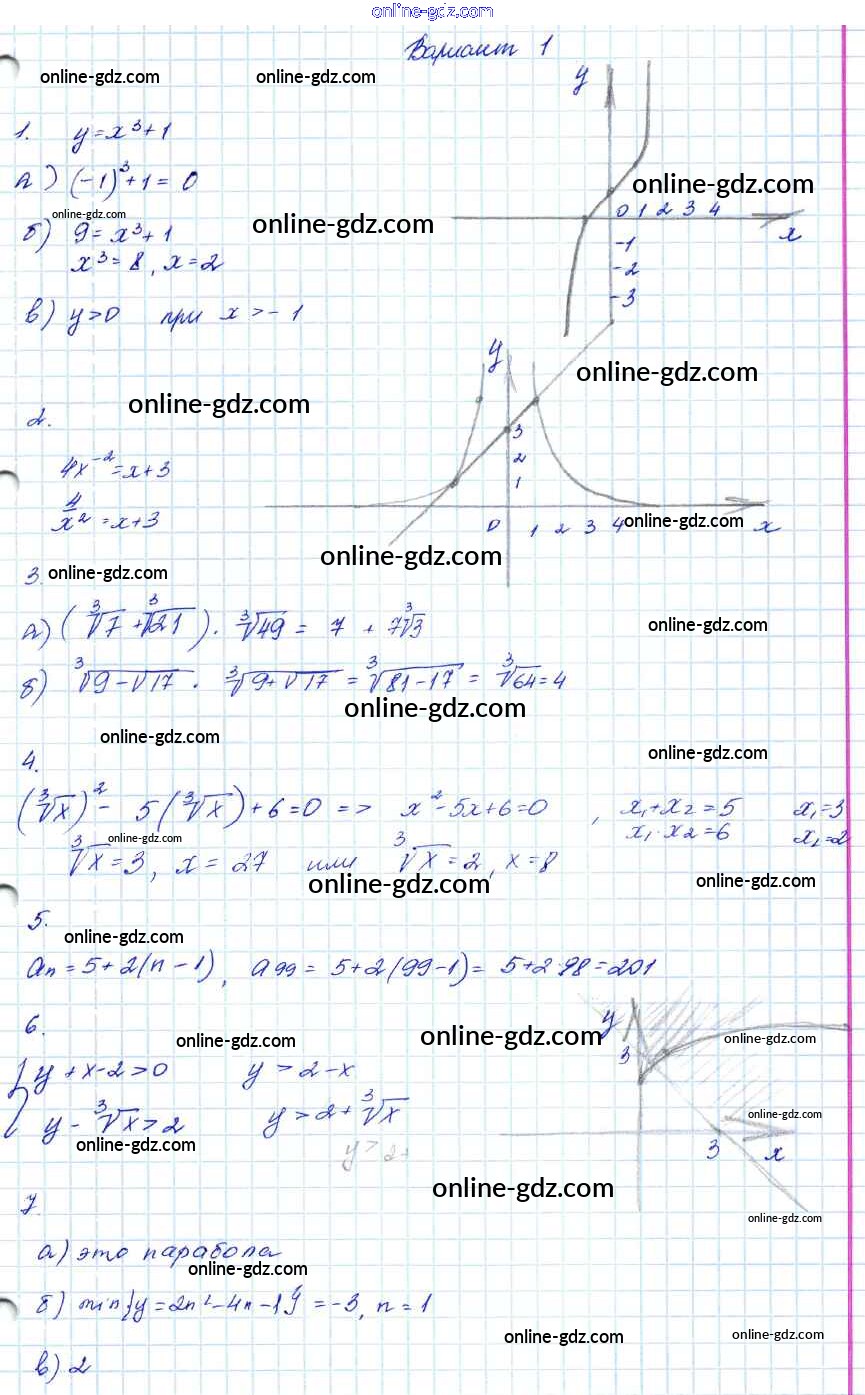 online-gdz.com
Вариант 1
online-gdz.com online-gdz.com
y
1. y = x³ + 1
а) (-1)³ + 1 = 0
online-gdz.com
0 1 2 3 4
x
online-gdz.com
б) 9 = x³ + 1
online-gdz.com
x³ = 8, x = 2
-1
-2
-3
в) y > 0 при x > -1
y
online-gdz.com
online-gdz.com
2.
3
2
1
4x⁻² = x + 3
4/x² = x + 3
0 1 2 3 4
online-gdz.com
x
online-gdz.com
3. online-gdz.com
а) (∛7 + ∛21) · ∛49 = 7 + 7∛3
online-gdz.com
б) ∛(9 - √17) · ∛(9 + √17) = ∛(81 - 17) = ∛64 = 4
online-gdz.com
online-gdz.com
online-gdz.com
4.
(∛x)² - 5(∛x) + 6 = 0 => x² - 5x + 6 = 0, x₁ + x₂ = 5 x₁ = 3
x₁ · x₂ = 6 x₂ = 2
online-gdz.com
∛x = 3, x = 27 или ∛x = 2, x = 8
online-gdz.com online-gdz.com
5.
online-gdz.com
aₙ = 5 + 2(n - 1), a₉₉ = 5 + 2(99 - 1) = 5 + 2·98 = 201
6.
y
online-gdz.com online-gdz.com online-gdz.com
3
{ y + x - 2 > 0 y > 2 - x
y - ∛x > 2 y > 2 + ∛x
online-gdz.com
online-gdz.com
3 x
y > 2+
online-gdz.com
7.
online-gdz.com
а) это парабола
online-gdz.com
б) min{y = 2n² - 4n - 1} = -3, n = 1
online-gdz.com online-gdz.com
в) 2